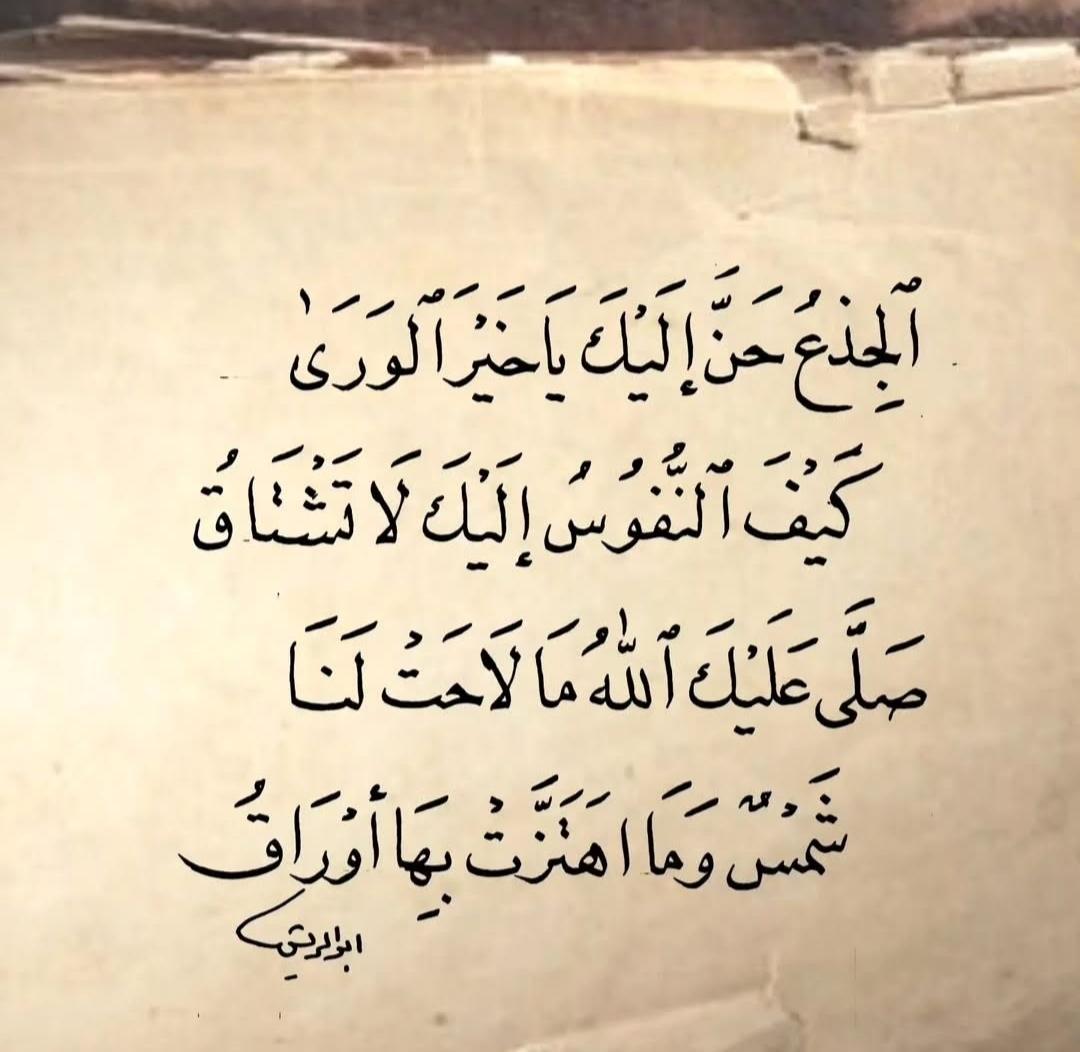 ٱلْجِذعُ حَنَّ إِلَيْكَ يَا خَيْرَ ٱلوَرَىٰ
كَيْفَ ٱلنُّفُوسُ إِلَيْكَ لَا تَشْتَاقُ
صَلَّى عَلَيْكَ ٱللّٰهُ مَا لَاحَتْ لَنَا
شَمْسٌ وَمَا اهَتَزَّتْ بِهَا أَوْرَاقُ